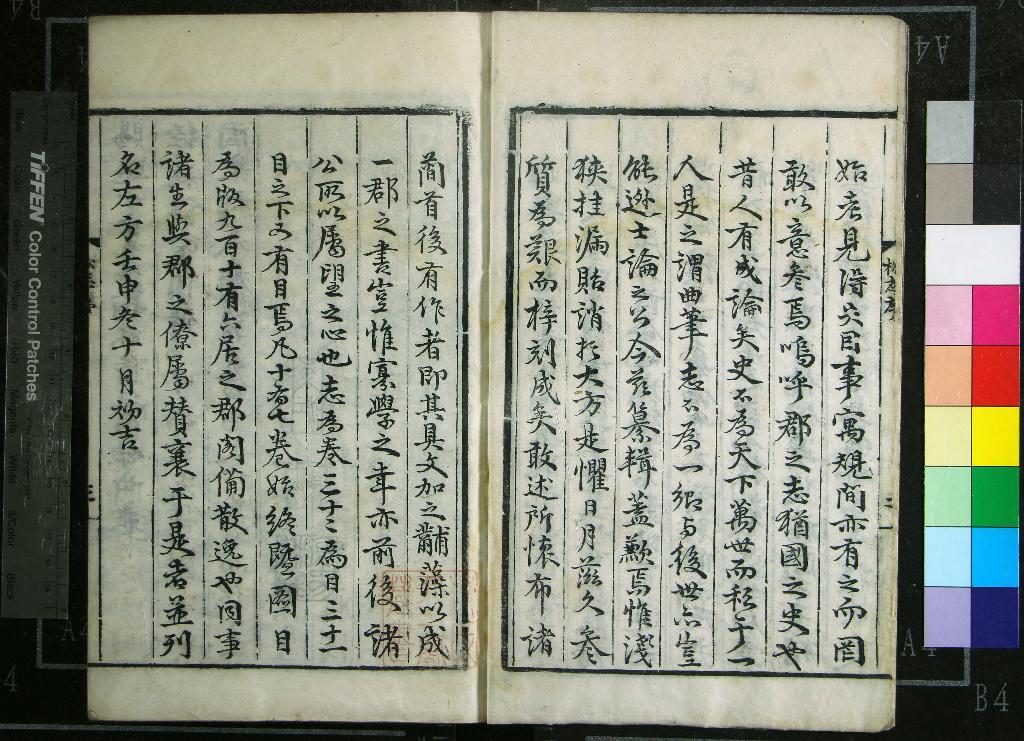 始者見得失因事寓規間亦有之而罔
敢以意参焉嗚呼郡之志猶國之史也
昔人有成論矣史不為天下萬世而私于一
人是之謂曲筆志不為一鄉与後世亦豈
能逃士論之公今茲纂輯蓋歉焉惟淺
狹挂漏貽誚於大方是懼日月滋久参
質為艱而梓刻成矣敢述所懷布諸
簡首後有作者即其具文加之黼藻以成
一郡之書豈惟寡學之幸亦前後諸
公所以屬望之心也志為卷三十二為目三十一
目之下又有目焉凡十有七卷始終暨圖目
為版九百十有六居之郡閣備散逸也同事
諸生與郡之僚屬賛襄于是者並列
名左方壬申冬十月初吉
TIFFEN Color Control Patches
A4
B4